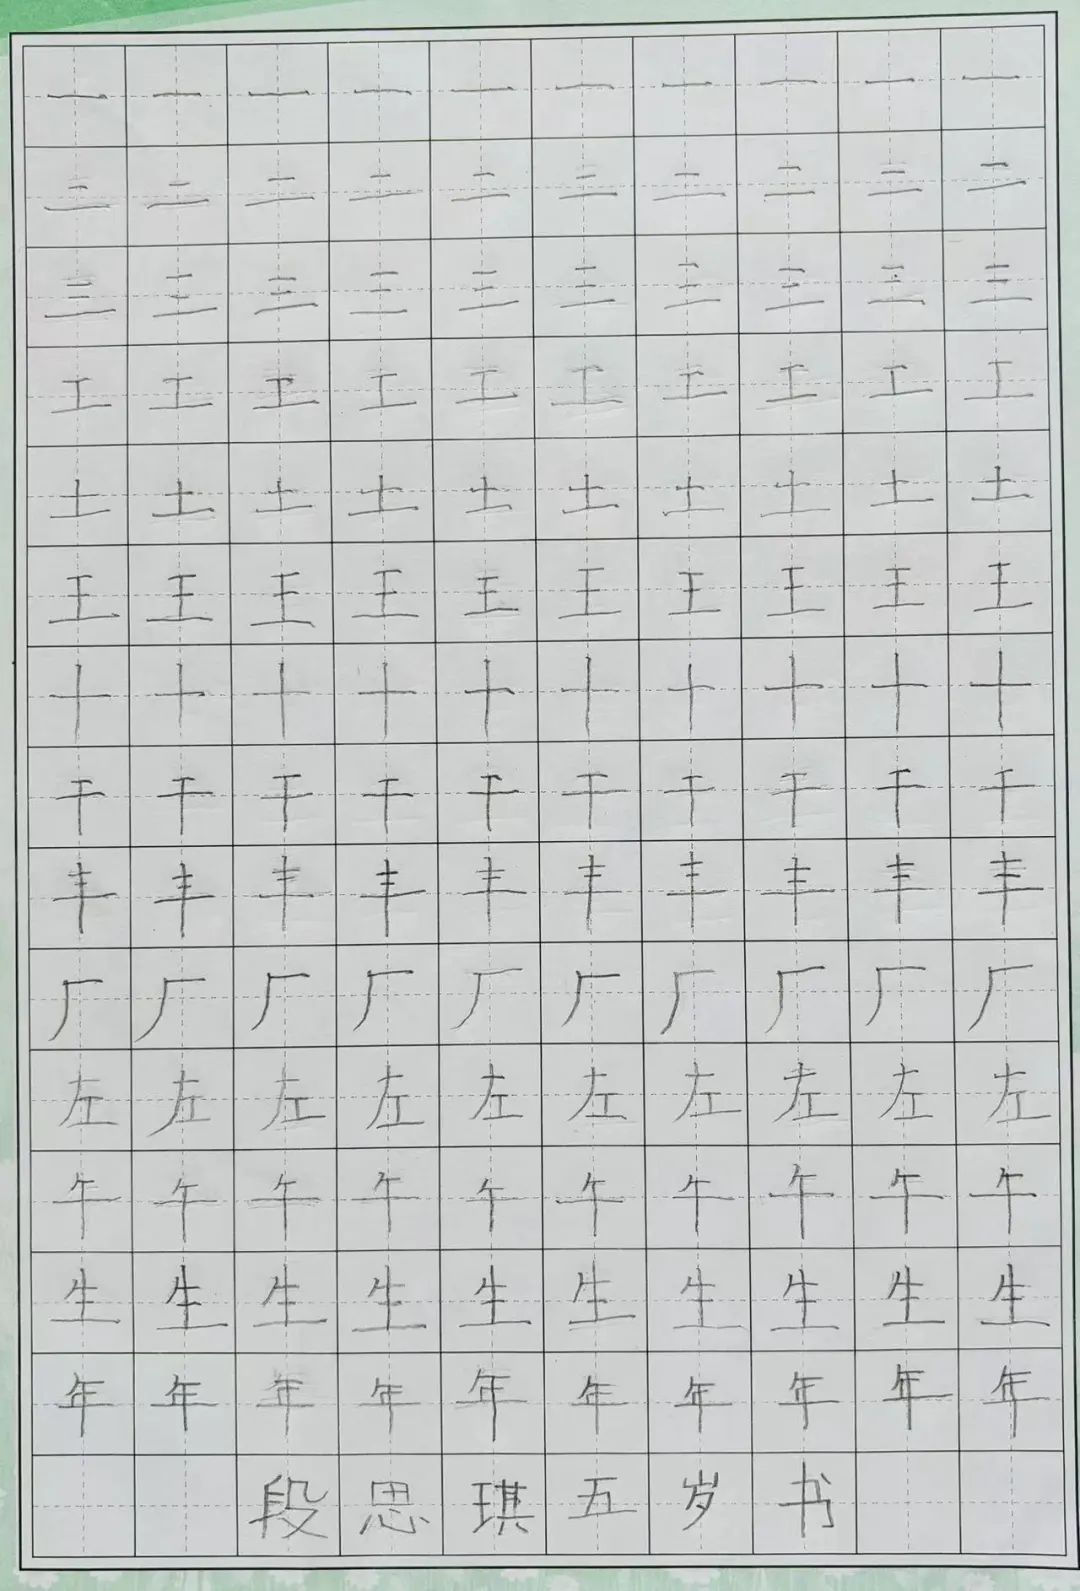 一一一一一一一一一一
二二二二二二二二二二
三三三三三三三三三三
工工工工工工工工工工
土土土土土土土土土土
王王王王王王王王王王
十十十十十十十十十十
干干干干干干干干干干
丰丰丰丰丰丰丰丰丰丰
厂厂厂厂厂厂厂厂厂厂
左左左左左左左左左左
午午午午午午午午午午
生生生生生生生生生生
年年年年年年年年年年
段思琪五岁书